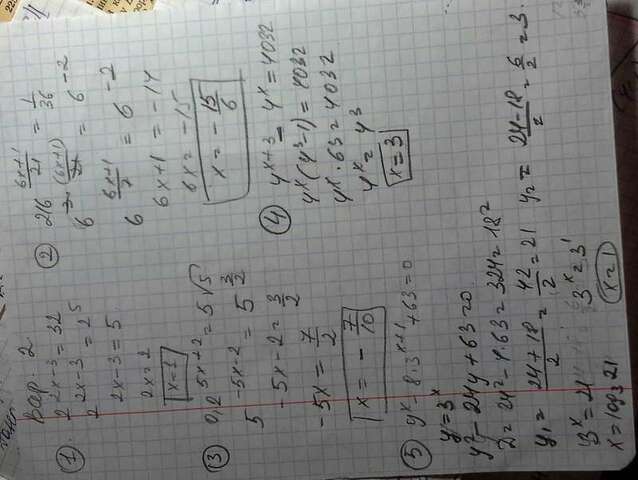 Вар. 2
① 2^(2x-3) = 32
2^(2x-3) = 2^5
2x-3 = 5
2x = 2
x = 1
② 216^((6x+1)/21) = 1/36
6^(3·(6x+1)/21) = 6^(-2)
6^((6x+1)/7) = 6^(-2)
6x+1 = -14
6x = -15
x = -15/6
③ 0,2^(5x+2) = 5√5
5^(-5x-2) = 5^(3/2)
-5x-2 = 3/2
-5x = 7/2
x = -7/10
④ 4^(x+3) - 4^x = 4032
4^x(4^3-1) = 4032
4^x·63 = 4032
4^x = 4^3
x = 3
⑤ 9^x - 8·3^(x+1) + 63 = 0
y = 3^x
y^2 - 24y + 63 = 0
D = 24^2 - 4·63 = 324 = 18^2
y₁ = (24+18)/2 = 42/2 = 21 y₂ = (24-18)/2 = 6/2 = 3.
3^x = 21 3^x = 3^1
x = log₃21 x = 1